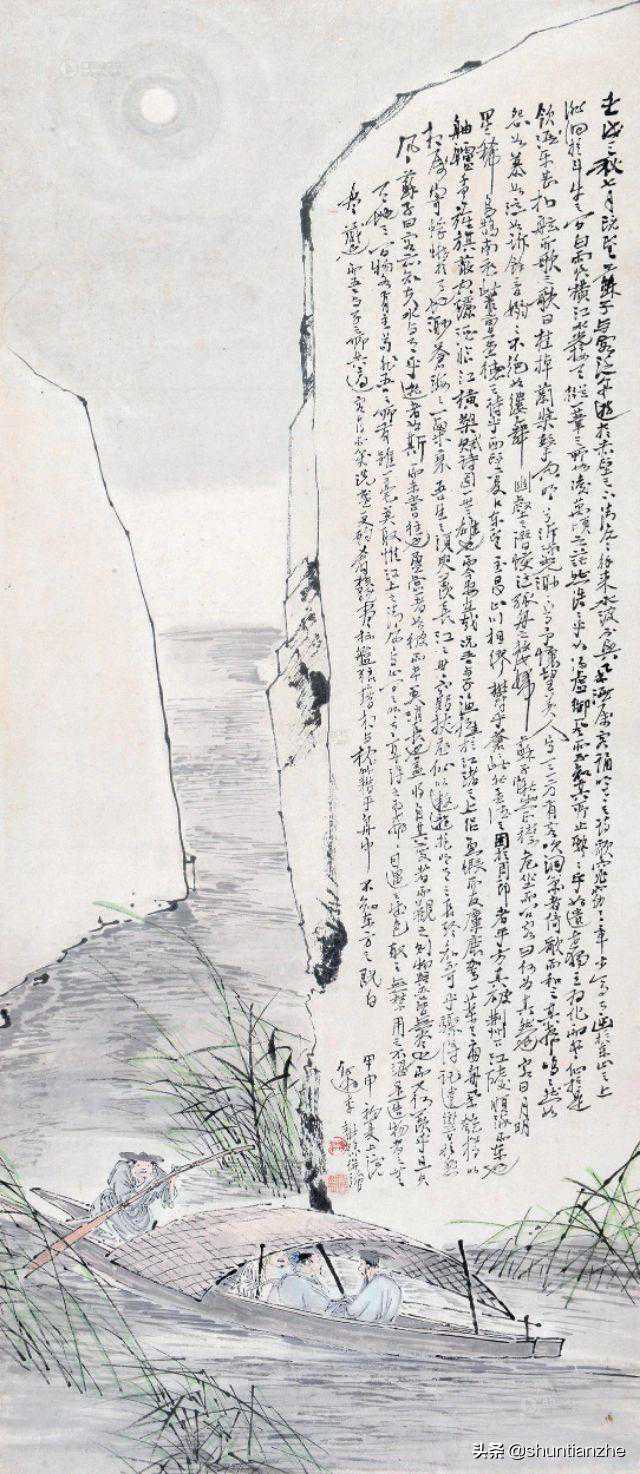 壬戌之秋七月既望蘇子與客泛舟遊於赤壁之下清風徐來水波不興舉酒屬客誦明月之詩歌窈窕之章少焉月出於東山之上
徘徊於斗牛之間白露橫江水光接天縱一葦之所如凌萬頃之茫然浩浩乎如馮虛御風而不知其所止飄飄乎如遺世獨立羽化而登仙於是
飲酒樂甚扣舷而歌之歌曰桂棹蘭槳擊空明兮泝流光渺渺兮予懷望美人兮天一方有客吹洞簫者倚歌而和之其聲嗚嗚然如
怨如慕如泣如訴餘音嫋嫋不絕如縷舞幽壑之潛蛟泣孤舟之嫠婦蘇子愀然正襟危坐而問客曰何為其然也客曰月明
星稀烏鵲南飛此非曹孟德之詩乎西望夏口東望武昌山川相繆鬱乎蒼蒼此非孟德之困於周郎者乎方其破荊州下江陵順流而東也
舳艫千里旌旗蔽空釃酒臨江橫槊賦詩固一世之雄也而今安在哉況吾與子漁樵於江渚之上侶魚蝦而友麋鹿駕一葉之扁舟舉匏樽以
相屬寄蜉蝣於天地渺蒼海之一粟哀吾生之須臾羨長江之無窮挾飛仙以遨遊抱明月而長終知不可乎驟得託遺響於悲
風蘇子曰客亦知夫水與月乎逝者如斯而未嘗往也盈虛者如彼而卒莫消長也蓋將自其變者而觀之則物與我皆無盡也而又何羨乎且夫
天地之間物各有主苟非吾之所有雖一毫莫取惟江上之清風與山間之明月耳得之為聲目遇之成色取之無禁用之不竭是造物者之無
盡藏而吾與子所共適客喜而笑洗盞更酌肴核既盡杯盤狼藉相與枕藉乎舟中不知東方之既白
甲申初夏上浣
头条 @shuntianzhe